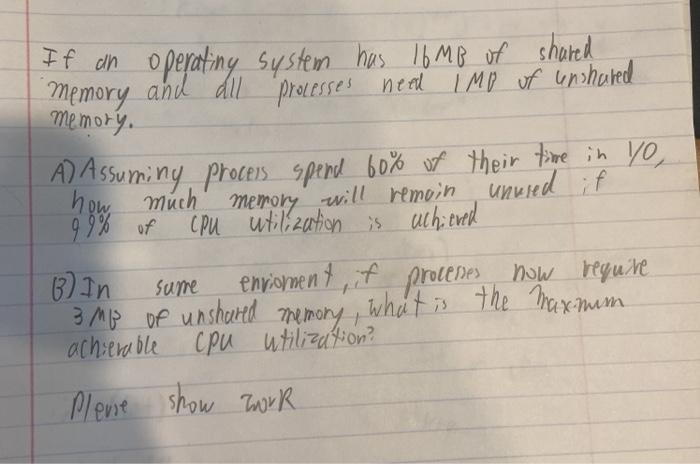 If an operating system has 16MB of shared
memory and all processes need 1MB of unshared
memory.
A) Assuming process spend 60% of their time in I/O,
how much memory will remain unused if
99% of CPU utilization is achieved
B) In same enviorment, if processes now require
3 MB of unshared memory, what is the maxmum
achierable CPU utilization?
Please show work